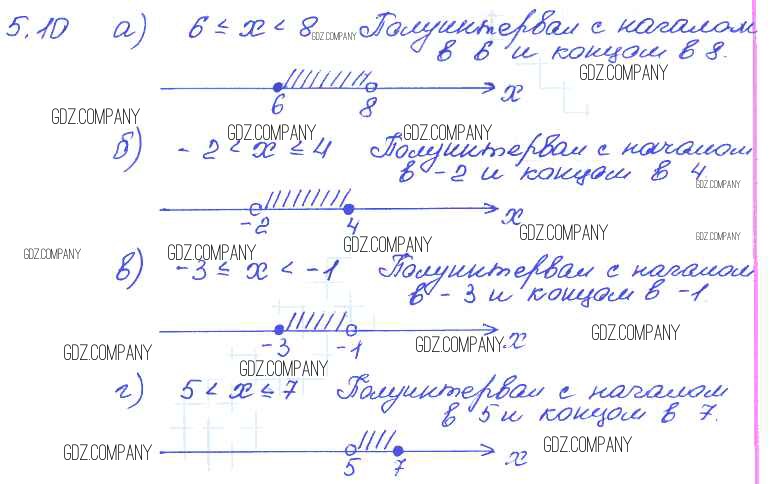 5.10 а) 6 ≤ x < 8 GDZ.COMPANY Полуинтервал с началом
в 6 и концом в 8.
GDZ.COMPANY
6 8 x
GDZ.COMPANY
GDZ.COMPANY GDZ.COMPANY
б) -2 < x ≤ 4 Полуинтервал с началом
в -2 и концом в 4
GDZ.COMPANY
-2 4 x
GDZ.COMPANY GDZ.COMPANY
GDZ.COMPANY GDZ.COMPANY GDZ.COMPANY
в) -3 ≤ x < -1 Полуинтервал с началом
в -3 и концом в -1.
GDZ.COMPANY
-3 -1 GDZ.COMPANY x
GDZ.COMPANY
GDZ.COMPANY
г) 5 < x ≤ 7 Полуинтервал с началом
в 5 и концом в 7.
GDZ.COMPANY GDZ.COMPANY
5 7 x